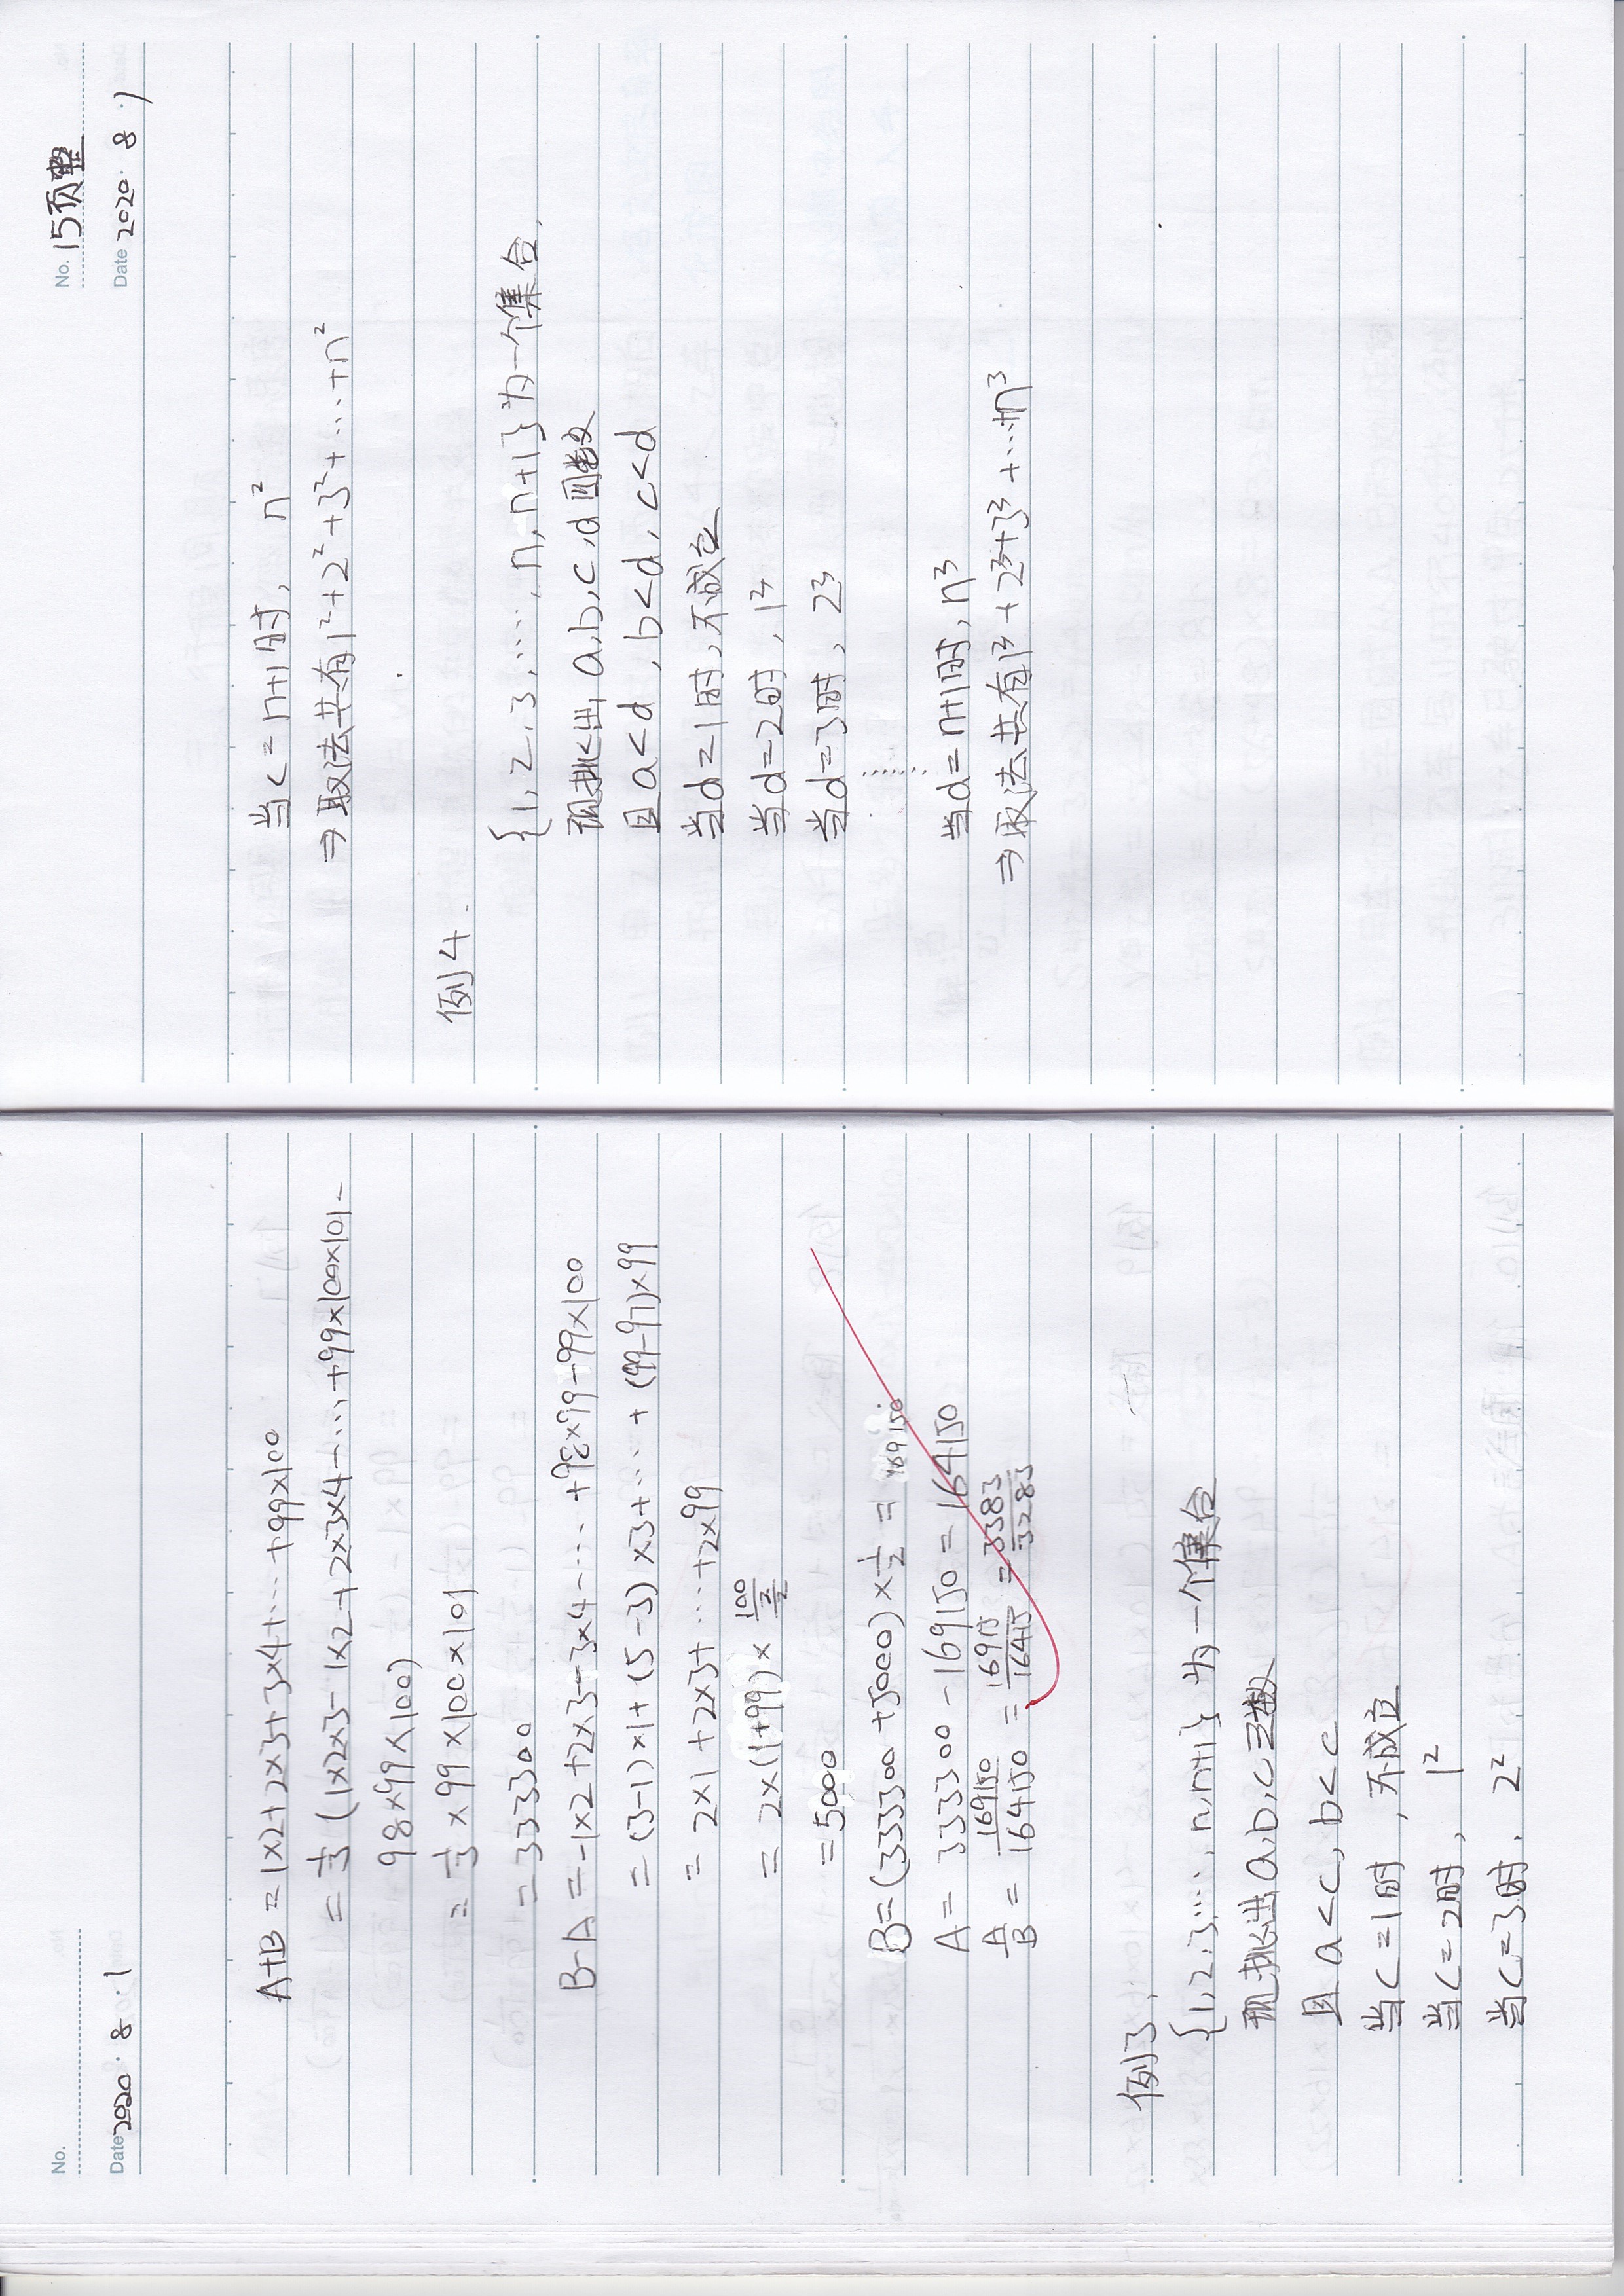 No.
Date 2020.8.1
A+B = 1×2+2×3+3×4+…+99×100
= 1/3 (1×2×3-1×2+2×3×4-…+99×100×101-
98×99×100)
= 1/3 ×99×100×101
= 333300
B-A = -1×2+2×3-3×4-…+98×99-99×100
= (3-1)×1+(5-3)×3+…+(99-97)×99
= 2×1+2×3+…+2×99
= 2×(1+99)× 100/2/2
= 5000
B=(333300+5000)×1/2 = 169150
A= 333300-169150=164150
A/B = 169150/164150 = 16915/16415 = 3383/3283
例3.
{1,2,3…,n,n+1}为一个集合
现挑出a,b,c三数
且a<c,b<c
当c=1时,不成立
当c=2时, 1²
当c=3时, 2²
No. 15页整
Date 2020.8.1
当c=n+1时, n²
⇒取法共有1²+2²+3²+…+n²
例4.
{1,2,3,…,n,n+1}为一个集合,
现挑出a,b,c,d四数
且a<d,b<d,c<d
当d=1时,不成立
当d=2时,1³
当d=3时,2³
……
当d=n+1时,n³
⇒取法共有1³+2³+3³+…+n³